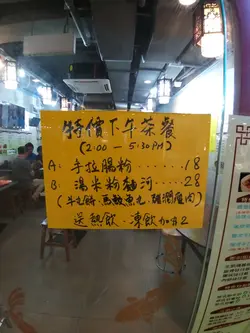 特價下午茶餐
(2:00 — 5:30PM)
A: 手拉腸粉.......18
B: 湯米粉麵河.....28
(牛𦟌酥.馬鮫魚丸.豬潤瘦肉)
送熱飲.凍飲加收2